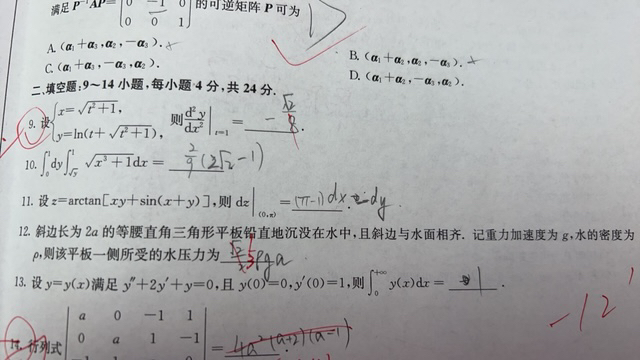 满足 P⁻¹AP = [0 -1 0; 0 0 1] 的可逆矩阵 P 可为
A. (α₁+α₃, α₂, -α₃).
B. (α₁+α₂, α₂, -α₃).
C. (α₁+α₃, -α₃, α₂).
D. (α₁+α₂, -α₃, α₂).
二、填空题:9~14 小题,每小题 4 分,共 24 分.
9. 设 { x=√(t²+1), y=ln(t+√(t²+1)), 则 d²y/dx² |_{t=1} = .
10. ∫₀¹dy∫_{√y}¹ √(x³+1)dx = 2/9 (2√2-1)
11. 设 z=arctan[xy+sin(x+y)],则 dz|_{(0,π)} = (π-1)dx - dy.
12. 斜边长为 2a 的等腰直角三角形平板铅直地沉没在水中,且斜边与水面相齐. 记重力加速度为 g,水的密度为
ρ,则该平板一侧所受的水压力为 ρga
13. 设 y=y(x)满足 y″+2y′+y=0,且 y(0)=0,y′(0)=1,则∫₀^{+∞} y(x)dx = 1 .
-12'
14. 行列式 | a 0 -1 1
0 a 1 -1 | = 4a²(a+2)(a-1)